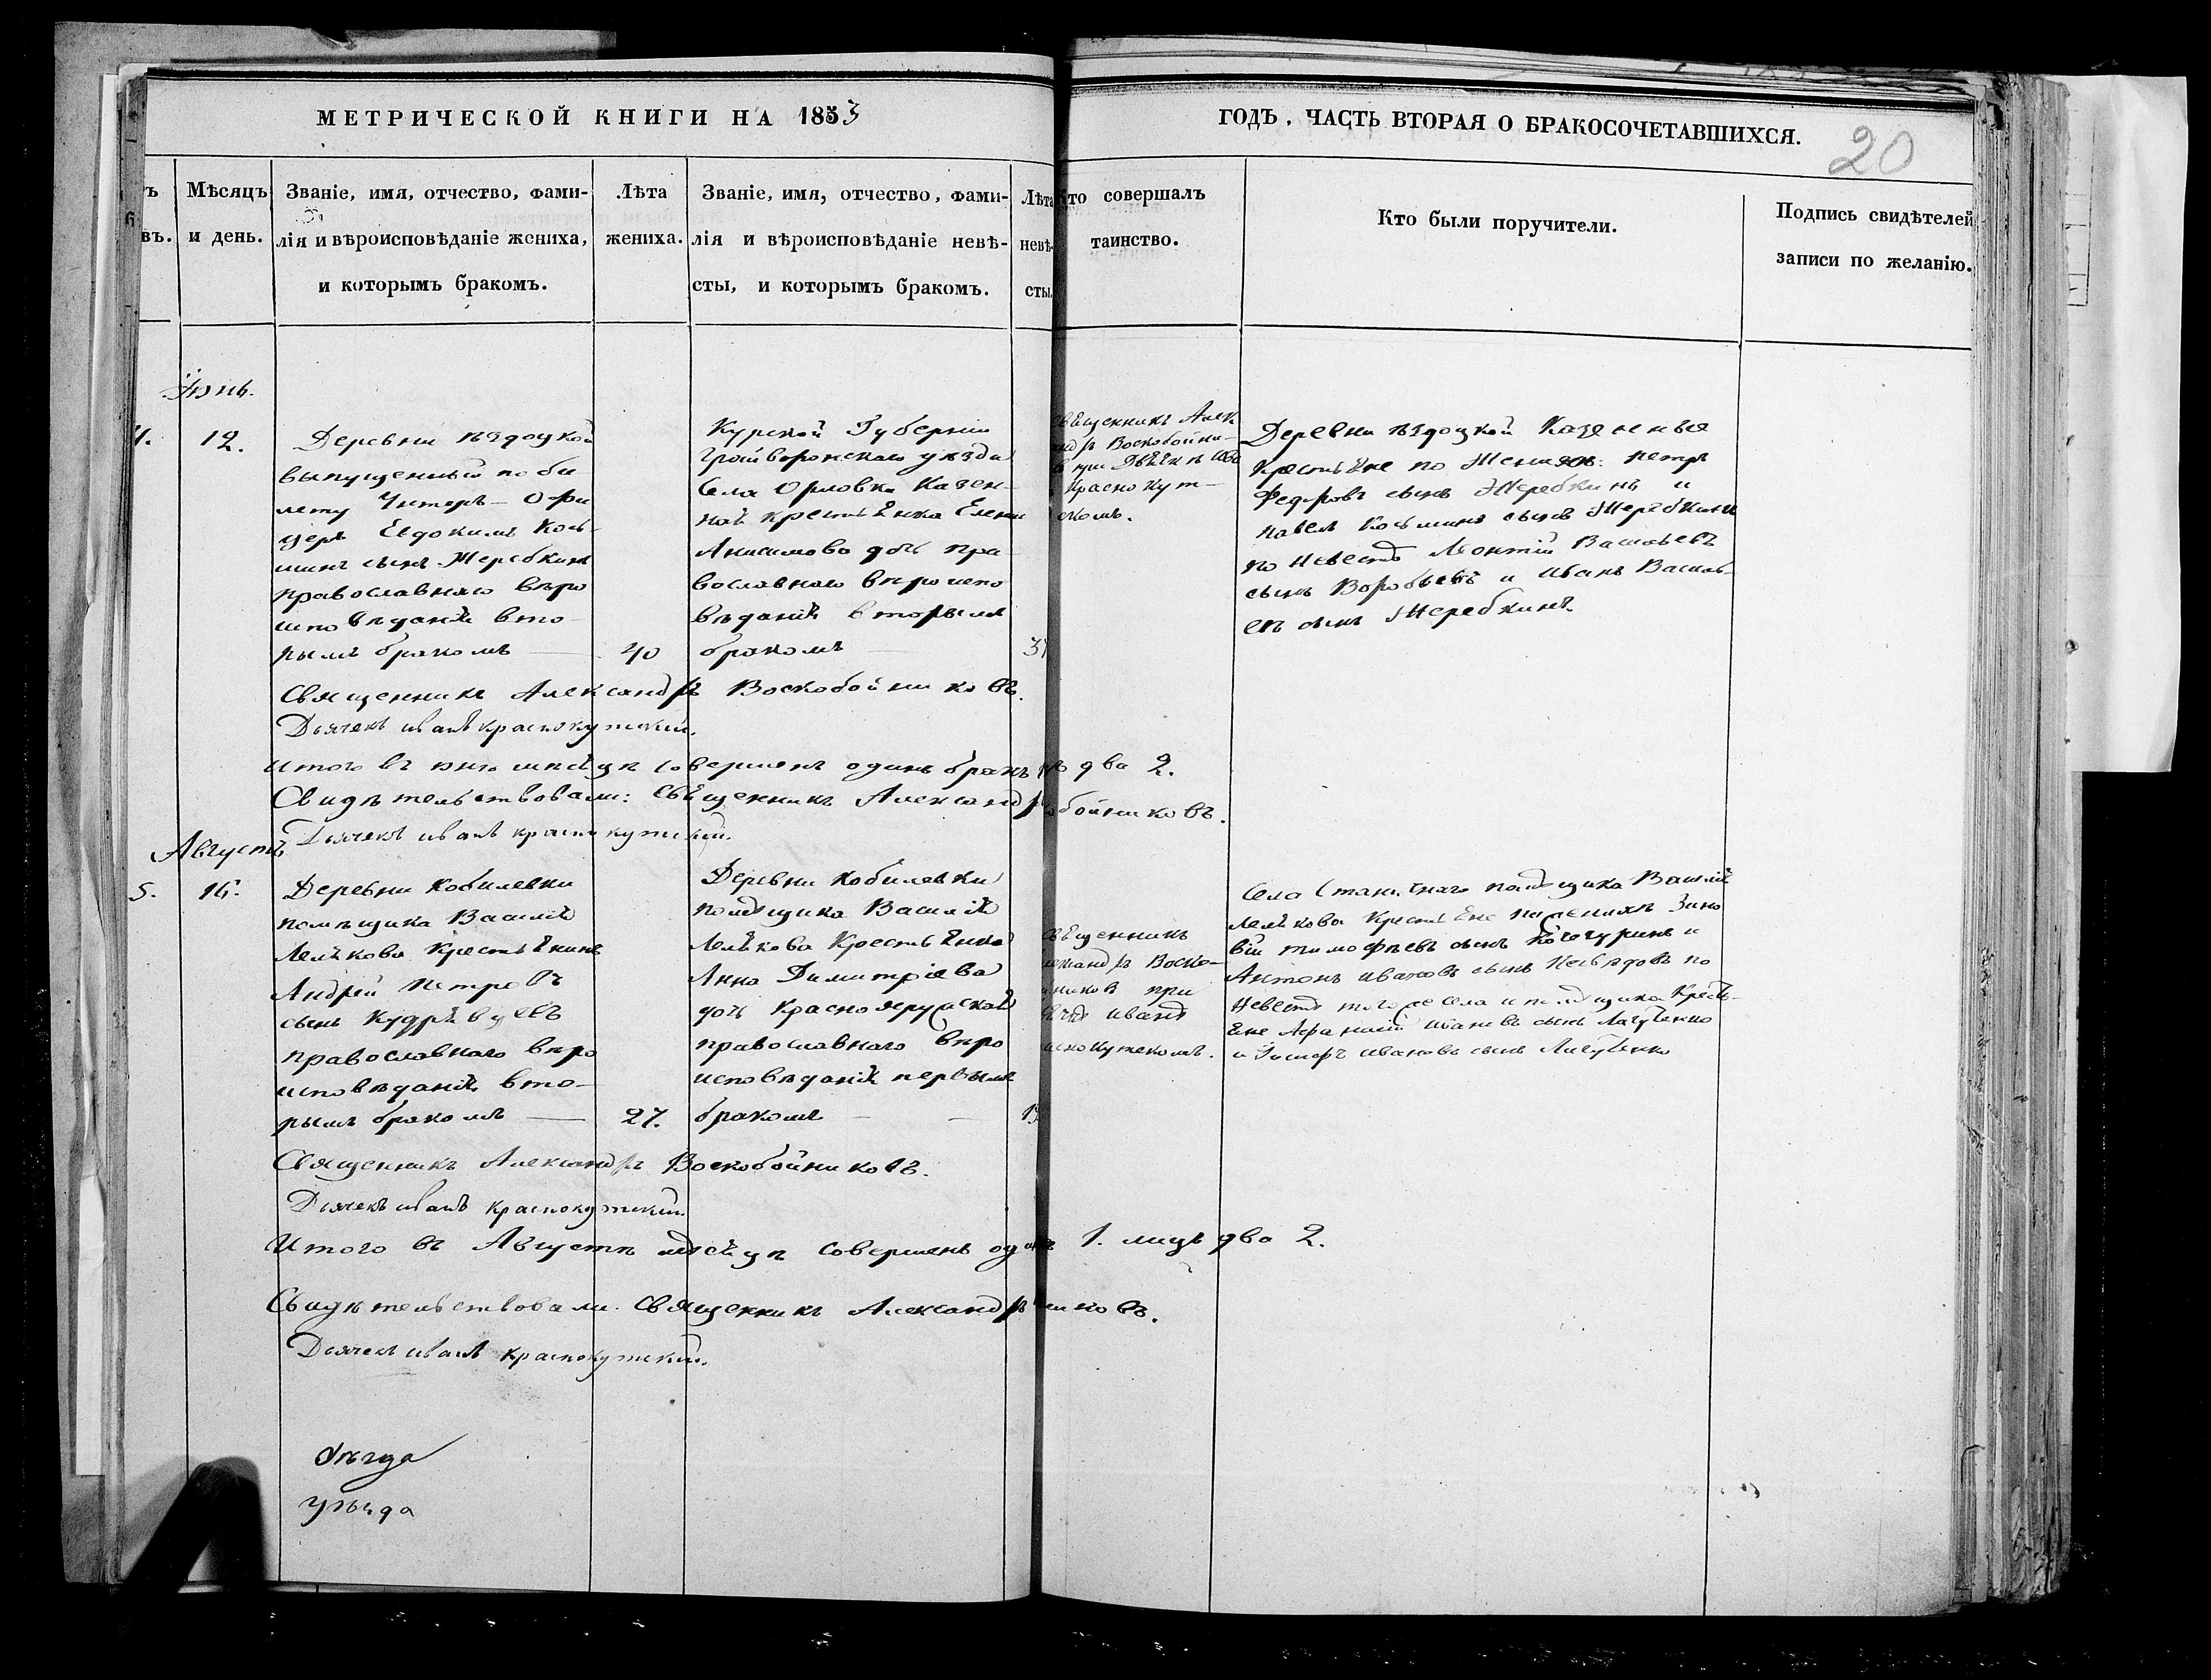 МЕТРИЧЕСКОЙ КНИГИ НА 1853
ГОДЪ, ЧАСТЬ ВТОРАЯ О БРАКОСОЧЕТАВШИХСЯ.
20
Мѣсяцъ
и день.
Званіе, имя, отчество, фами-
лія и вѣроисповѣданіе жениха,
и которымъ бракомъ.
Лѣта
жениха.
Званіе, имя, отчество, фами-
лія и вѣроисповѣданіе невѣ-
сты, и которымъ бракомъ.
Лѣта
невѣ-
сты.
Кто совершалъ
таинство.
Кто были поручители.
Подпись свидѣтелей
записи по желанію.
Іюнь.
12.
Деревни
выпущенный по би
лету Унтеръ-Офи
церъ Евдокимъ Кось-
минъ сынъ Жеребкинъ
православнаго вѣро
исповѣданія вто-
рымъ бракомъ —
40
Курской Губерніи
Грайворонскаго уѣзда
Села Орловки Казен-
ная крестьянка Елена
Анисимова дочь пра-
вославнаго вѣроиспо
вѣданія вторымъ
бракомъ
Священникъ Алек
ндръ Воскобойни-
при
Краснокут-
скомъ.
Деревни Казенные
крестьяне по Женихѣ: петръ
Федоровъ сынъ Жеребкинъ и
павелъ Косьминъ сынъ Жеребкинъ
по Невестѣ Леонтій Васильевъ
сынъ Воробьевъ и иванъ Василь-
евъ сынъ Жеребкинъ.
Священникъ Александръ Воскобойниковъ.
Дьячекъ иванъ краснокутскій.
Итого въ юнѣ мѣсяцѣ совершенъ одинъ бракъ два 2.
Свидѣтельствовали: Священникъ Александръ обойниковъ.
Дьячекъ иванъ краснокутскій.
Августъ
5.
16.
Деревни Кобилевки
помѣщика Василія
крестьянинъ
Андрей Петровъ
сынъ
православнаго вѣро
исповѣданія вто-
рымъ бракомъ —
27.
Деревни Кобилевки
помѣщика Василія
Крестьянка
Анна Димитріева
дочь Краснояружской
православнаго вѣро
исповѣданія первымъ
бракомъ —
Священникъ
ександръ Воско-
никовъ при
ивана
аснокутскомъ.
Села помѣщика Василія
Крестьяне по женихѣ Зино
вій тимофѣевъ сынъ и
Антонъ ивановъ сынъ по
Невестѣ того же села и помѣщика Кресть-
яне Афанасій ивановъ сынъ
и ивановъ сынъ
Священникъ Александръ Воскобойниковъ.
Дьячекъ иванъ краснокутскій.
Итого въ Августѣ мѣсяцѣ совершенъ одинъ 1. лицъ два 2.
Свидѣтельствовали. Священникъ Александръ никовъ.
Дьячекъ иванъ краснокутскій.